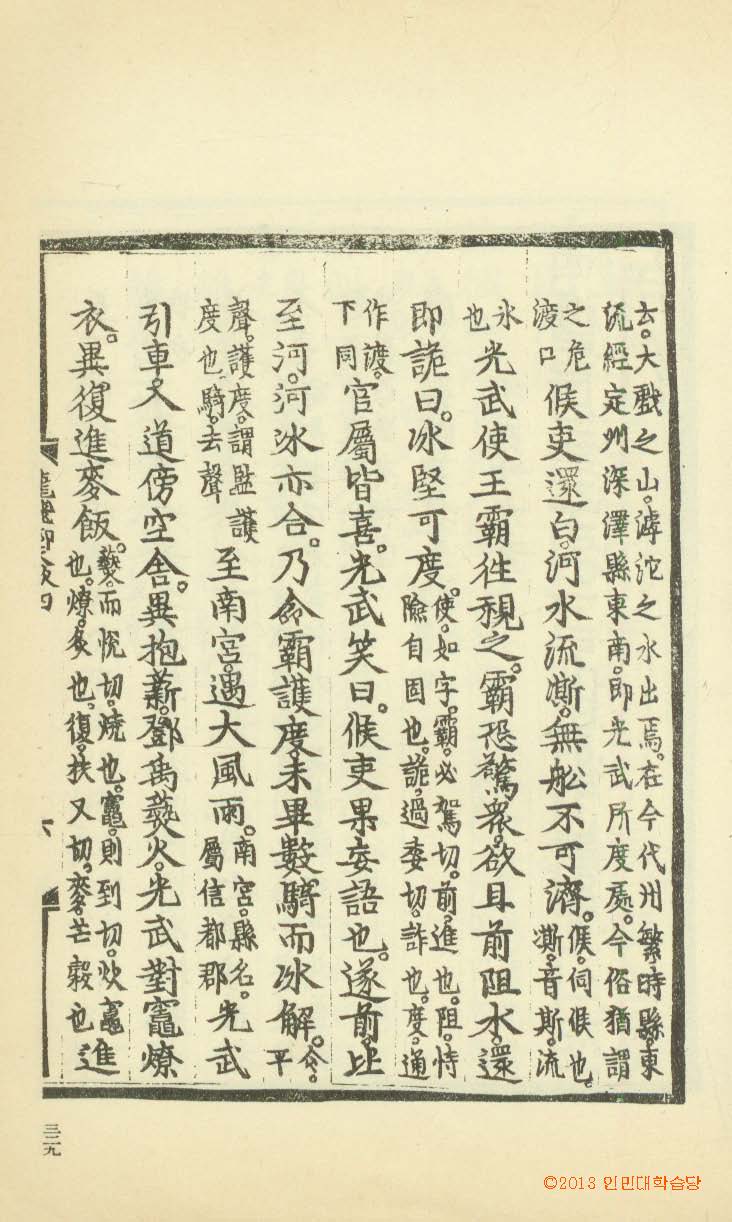 云。大戲之山。滹沱之水出焉。在今代州繁畤縣。東
流經定州深澤縣東南。即光武所度處。今俗猶謂
之危
渡口
候吏還白。河水流澌。無舩不可濟。
候。伺候也。
澌。音斯。流
氷
也
光武使王霸徃視之。霸恐驚衆。欲且前阻水。還
即詭曰。冰堅可度。
使。如字。霸。必駕切。前。進也。阻。恃
險自固也。詭。過委切。詐也。度。通
作渡。
下同
官屬皆喜。光武笑曰。候吏果妄語也。遂前。比
至河。河冰亦合。乃令霸護度。未畢數騎而冰解。
令。
平
聲。護度。謂監護
度也。騎。去聲
至南宮。遇大風雨。
南宮。縣名。
屬信都郡
光武
引車入道傍空舍。異抱薪。鄧禹爇火。光武對竈燎
衣。異復進麥飯。
爇。而悅切。燒也。竈。則到切。炊竈
也。燎。炙也。復。扶又切。麥。芒穀也
進
龍飛御天歌四
六
三二九
©2013 인민대학습당